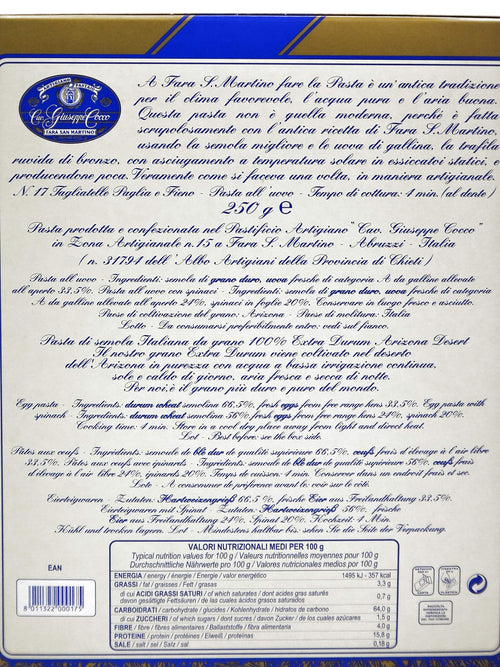 ARTIGIANO PASTAIO
Cav. Giuseppe Cocco
FARA SAN MARTINO
A Fara S. Martino fare la Pasta è un'antica tradizione
per il clima favorevole, l'acqua pura e l'aria buona.
Questa pasta non è quella moderna, perchè è fatta
scrupolosamente con l'antica ricetta di Fara S. Martino,
usando la semola migliore e le uova di gallina, la trafila
ruvida di bronzo, con asciugamento a temperatura solare in essiccatoi statici, e
producendone poca. Veramente come si faceva una volta, in maniera artigianale.
N. 17 Tagliatelle Paglia e Fieno - Pasta all'uovo - Tempo di cottura: 4 min. (al dente)
250 g e
Pasta prodotta e confezionata nel Pastificio Artigiano "Cav. Giuseppe Cocco"
in Zona Artigianale n. 15 a Fara S. Martino - Abruzzi - Italia
(n. 31794 dell'Albo Artigiani della Provincia di Chieti)
Pasta all'uovo - Ingredienti: semola di grano duro, uova fresche di categoria A da galline allevate
all'aperto 33.5%. Pasta all'uovo con spinaci - Ingredienti: semola di grano duro, uova fresche di categoria
A da galline allevate all'aperto 24%, spinaci in foglie 20%. Conservare in luogo fresco e asciutto.
Paese di coltivazione del grano: Arizona - Paese di molitura: Italia
Lotto - Da consumarsi preferibilmente entro: vedi sul fianco.
Pasta di semola Italiana da grano 100% Extra Durum Arizona Desert
Il nostro grano Extra Durum viene coltivato nel deserto
dell'Arizona in purezza con acqua a bassa irrigazione continua,
sole e caldo di giorno, aria fresca e secca di notte.
Per noi, è il grano più duro e puro del mondo.
Egg pasta - Ingredients: durum wheat semolina 66,5%, fresh eggs from free range hens 33.5%. Egg pasta with
spinach - Ingredients: durum wheat semolina 56%, fresh eggs from free range hens 24%, spinach 20%.
Cooking time: 4 min. Store in a cool dry place away from light and direct heat.
Lot - Best before: see the box side.
Pâtes aux œufs - Ingrédients: semoule de blé dur de qualité supérieure 66,5%, œufs frais d'élevage à l'air libre
33.5%. Pâtes aux œufs avec épinards - Ingrédients: semoule de blé dur de qualité supérieure 56%, œufs frais
d'élevage à l'air libre 24%, épinards 20%. Temps de cuisson: 4 min. Conserver dans un endroit frais et sec.
Lote - A consommer de préférence avant le: voir sur le côté.
Eierteigwaren - Zutaten: Hartweizengrieß 66.5 %, frische Eier aus Freilandhaltung 33.5%.
Eierteigwaren mit Spinat - Zutaten: Hartweizengrieß 56%, frische
Eier aus Freilandhaltung 24%, Spinat 20%. Kochzeit: 4 Min.
Kühl und trocken lagern. Lot - Mindestens haltbar bis: sehen Sie die Seite der Verpackung.
VALORI NUTRIZIONALI MEDI PER 100 g
Typical nutrition values for 100 g / Valeurs nutritionnelles moyennes pour 100 g
Durchschnittliche Nährwerte pro 100 g / Valores nutricionales medios por 100 g
ENERGIA / energy / énergie / Energie / valor energético 1495 kJ - 357 kcal
GRASSI / fat / graisses / Fett / grasas 3,3 g
di cui ACIDI GRASSI SATURI / of which saturates / dont acides gras saturés
davon gesättigte Fettsäuren / de las cuales ácidos grasos saturados 0,7 g
CARBOIDRATI / carbohydrate / glucides / Kohlenhydrate / hidratos de carbono 64,0 g
di cui ZUCCHERI / of which sugars / dont sucres / davon Zucker / de los cuales azúcares 1,5 g
FIBRE / fibre / fibres alimentaires / Ballaststoffe / fibra alimentaria 4,0 g
PROTEINE / protein / protéines / Eiweiß / proteínas 15,8 g
SALE / salt / sel / Salz / sal 0,18 g
EAN
8 011322 000175
RACCOLTA
DIFFERENZIATA